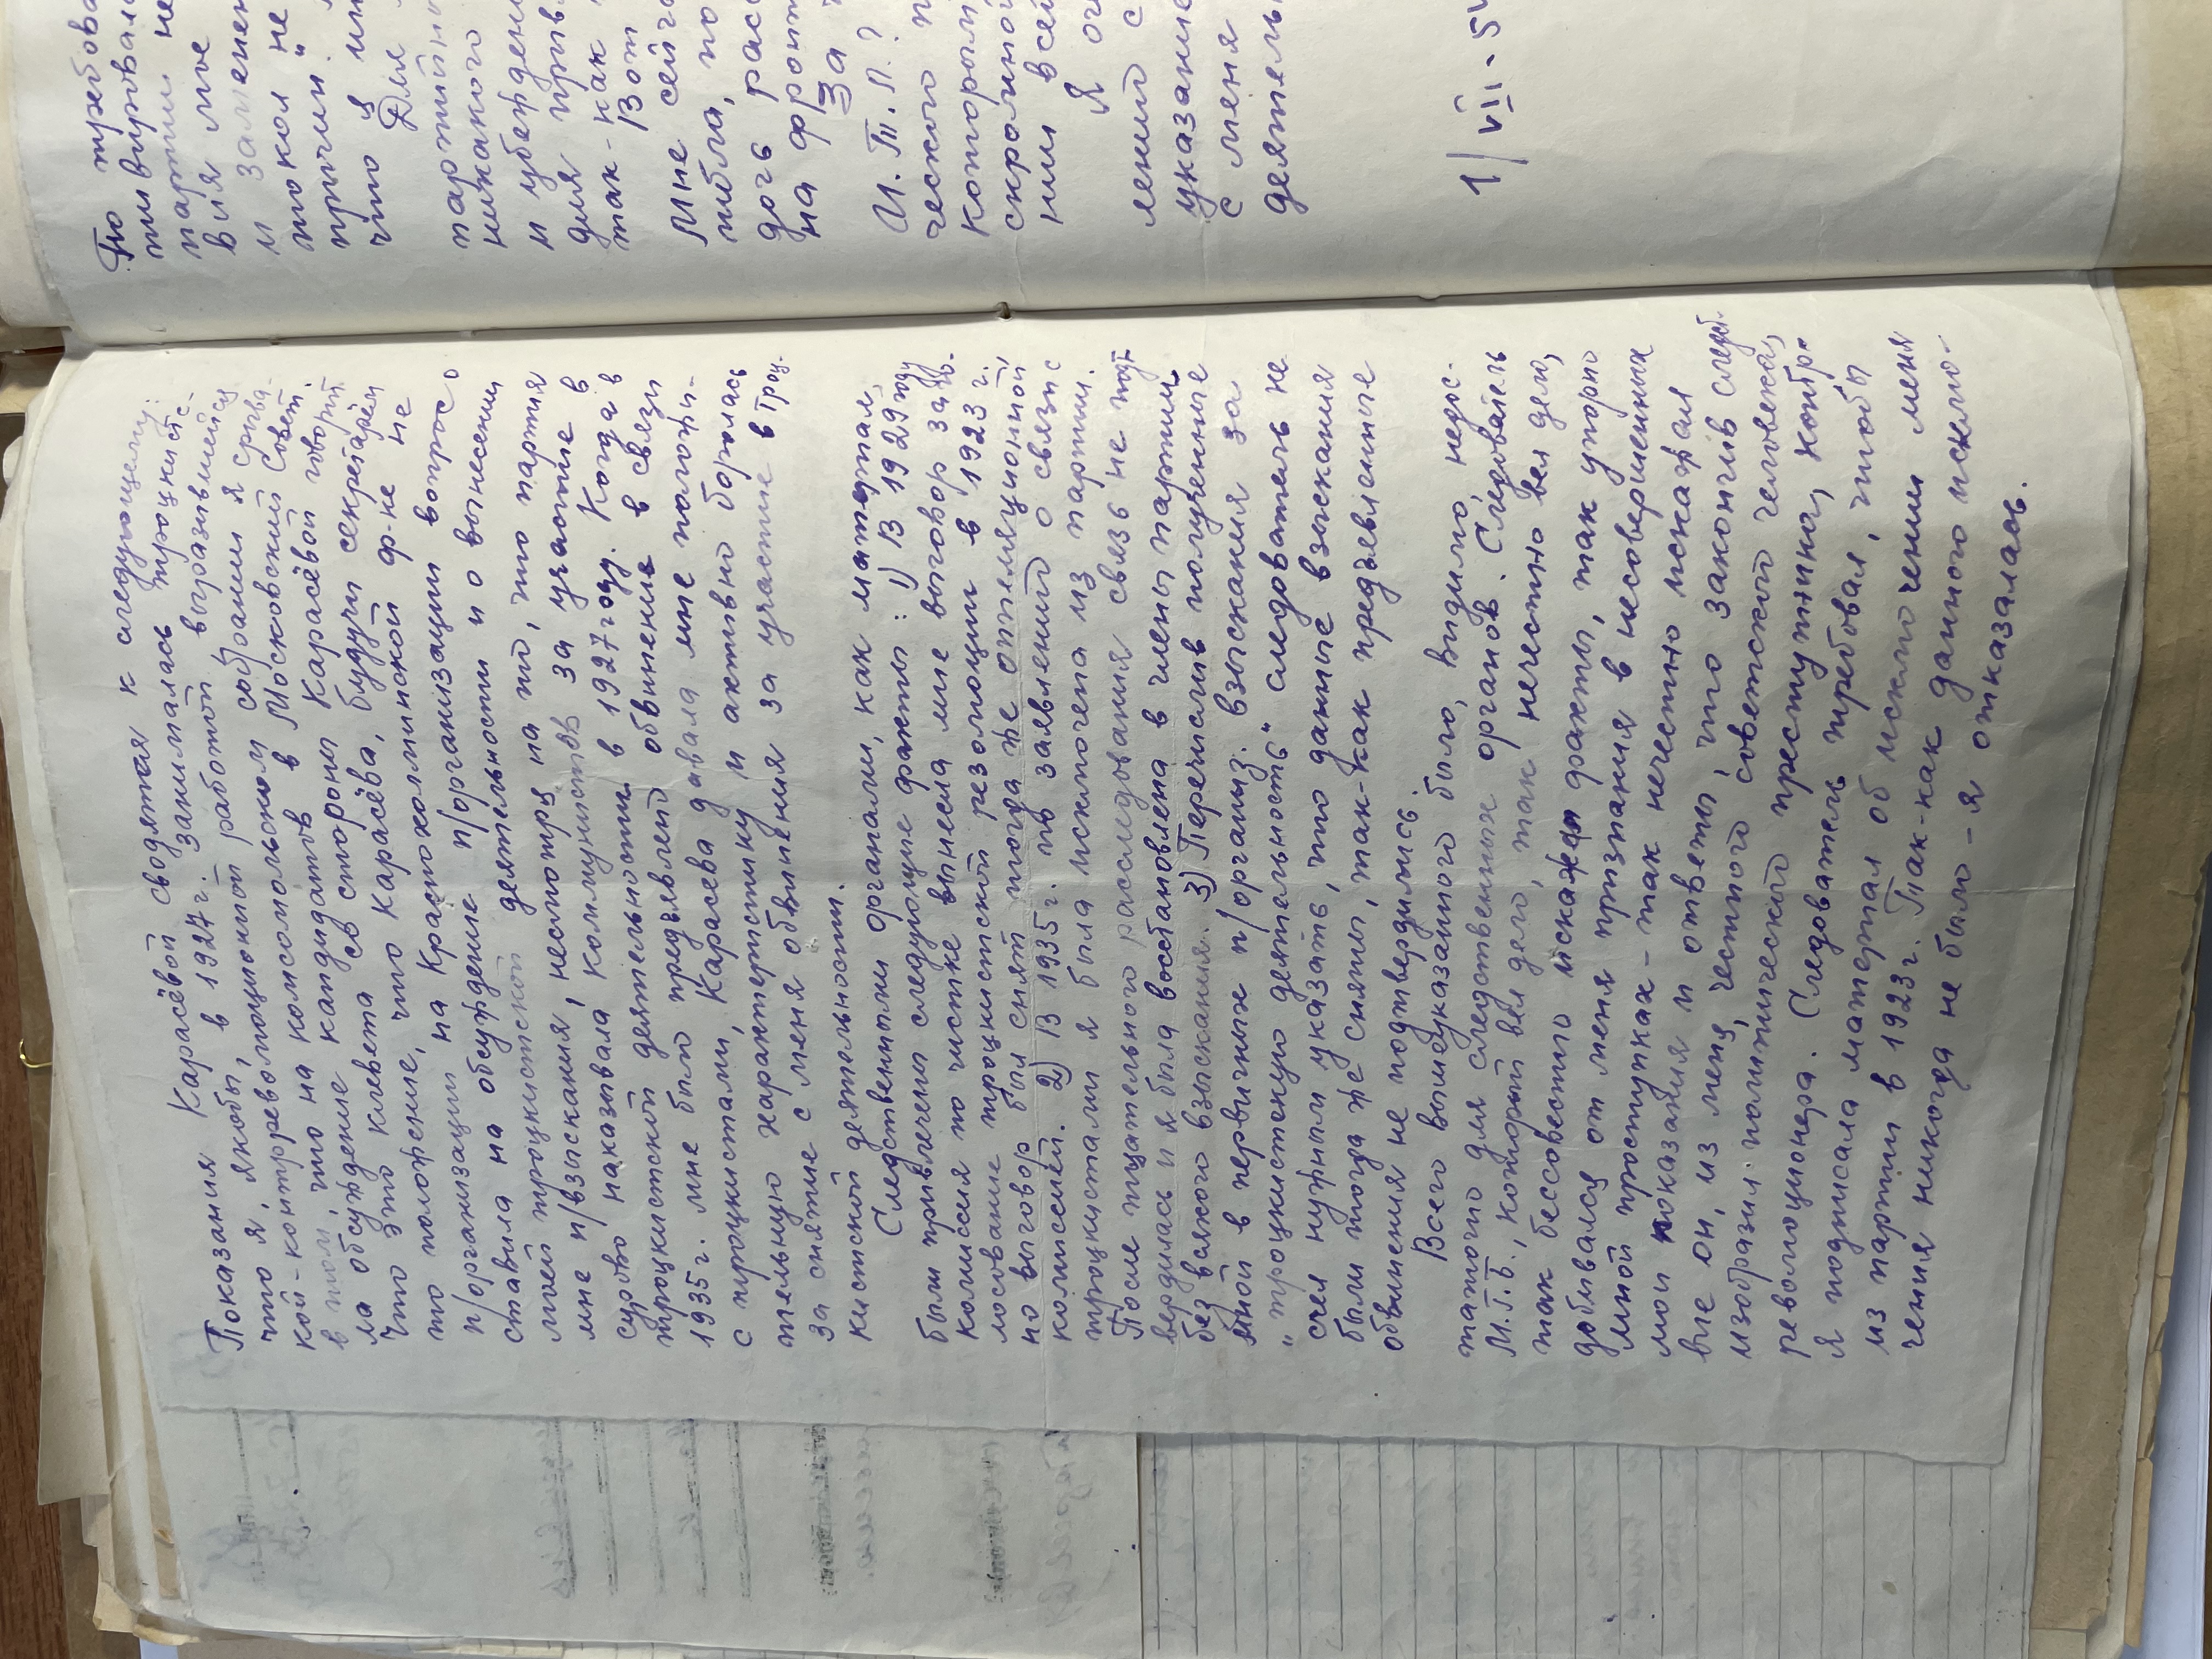 Показания Карасёвой сводятся к следующему:
что я, якобы, в 1927 г. занималась троцкистс-
кой-контрреволюционной работой, выразившейся
в том, что на комсомольском собрании я срыва-
ла обсуждение кандидатов в Московский Совет.
Что это клевета со стороны Карасёвой говорит
то положение, что Карасёва, будучи секретарём
п/организации на Краснохолминской ф-ке не
ставила на обсуждение п/организации вопрос о
моей троцкистской деятельности и о вынесении
мне п/взыскания, несмотря на то, что партия
сурово наказывала коммунистов за участие в
троцкистской деятельности в 1927 году. Когда в
1935 г. мне было предъявлено обвинение в связи
с троцкистами, Карасева давала мне положи-
тельную характеристику и активно боролась
за снятие с меня обвинения за участие в троц-
кистской деятельности.
Следственными органами, как матерьял,
были привлечены следующие факты: 1) В 1929 году
комиссия по чистке вынесла мне выговор за го-
лосование троцкистской резолюции в 1923 г.,
но выговор был снят тогда же апелляционной
комиссией. 2) В 1935 г. по заявлению о связи с
троцкистами я была исключена из партии.
После тщательного расследования связь не подт
вердилась и я была восстановлена в члены партии
без всякого взыскания. 3) Перечислив полученные
мной в первичных п/организ. взыскания за
„троцкистскую деятельность" следователь не
счел нужным указать, что данные взыскания
были тогда же сняты, так-как предъявленные
обвинения не подтвердились.
Всего вышеуказанного было, видимо, недос-
таточно для следственных органов. Следователь
М.Г.Б., который вел дело, так нечестно вел дело,
так бессовестно искажал факты, так упорно
добивался от меня признания в несовершенных
мной проступках - так нечестно искажал
мои показания и ответы, что закончив следст-
вие он, из меня, честного советского человека,
изобразил политического преступника, контр-
революционера. Следователь требовал, чтобы
я подписала матерьял об исключении меня
из партии в 1923 г. Так-как данного исклю-
чения никогда не было - я отказалась.
По требова
тивировал
партии не
вия мое
и заменен
токол не
причин".
что я
Для
партийн
никакого
и убежден
для прив
так-как
Вот
Мне сейч
тебла, по
дось рас
на фронт
За
И.Т.Л.?
ческого п
которым
скромной
нии всей
Я
лений с
указание
с меня
деятель
1/VII-5